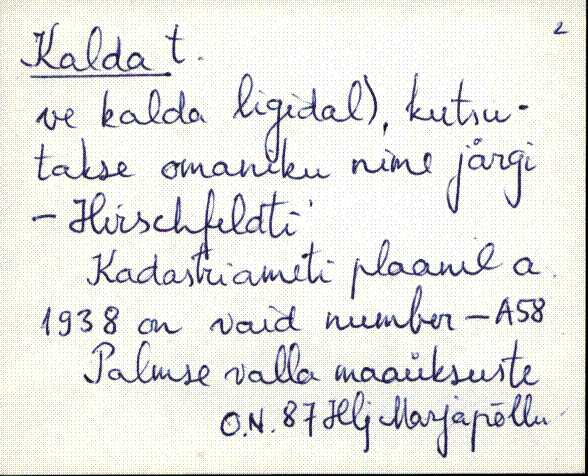 2
Kalda t.
ve kalda ligidal), kutsu-
takse omaniku nime järgi
- Hirschfeldti
Kadastriameti plaanil a.
1938 on vaid number - A58
Palmse valla maaüksuste
O.N. 87 Hlj Marjapõllu